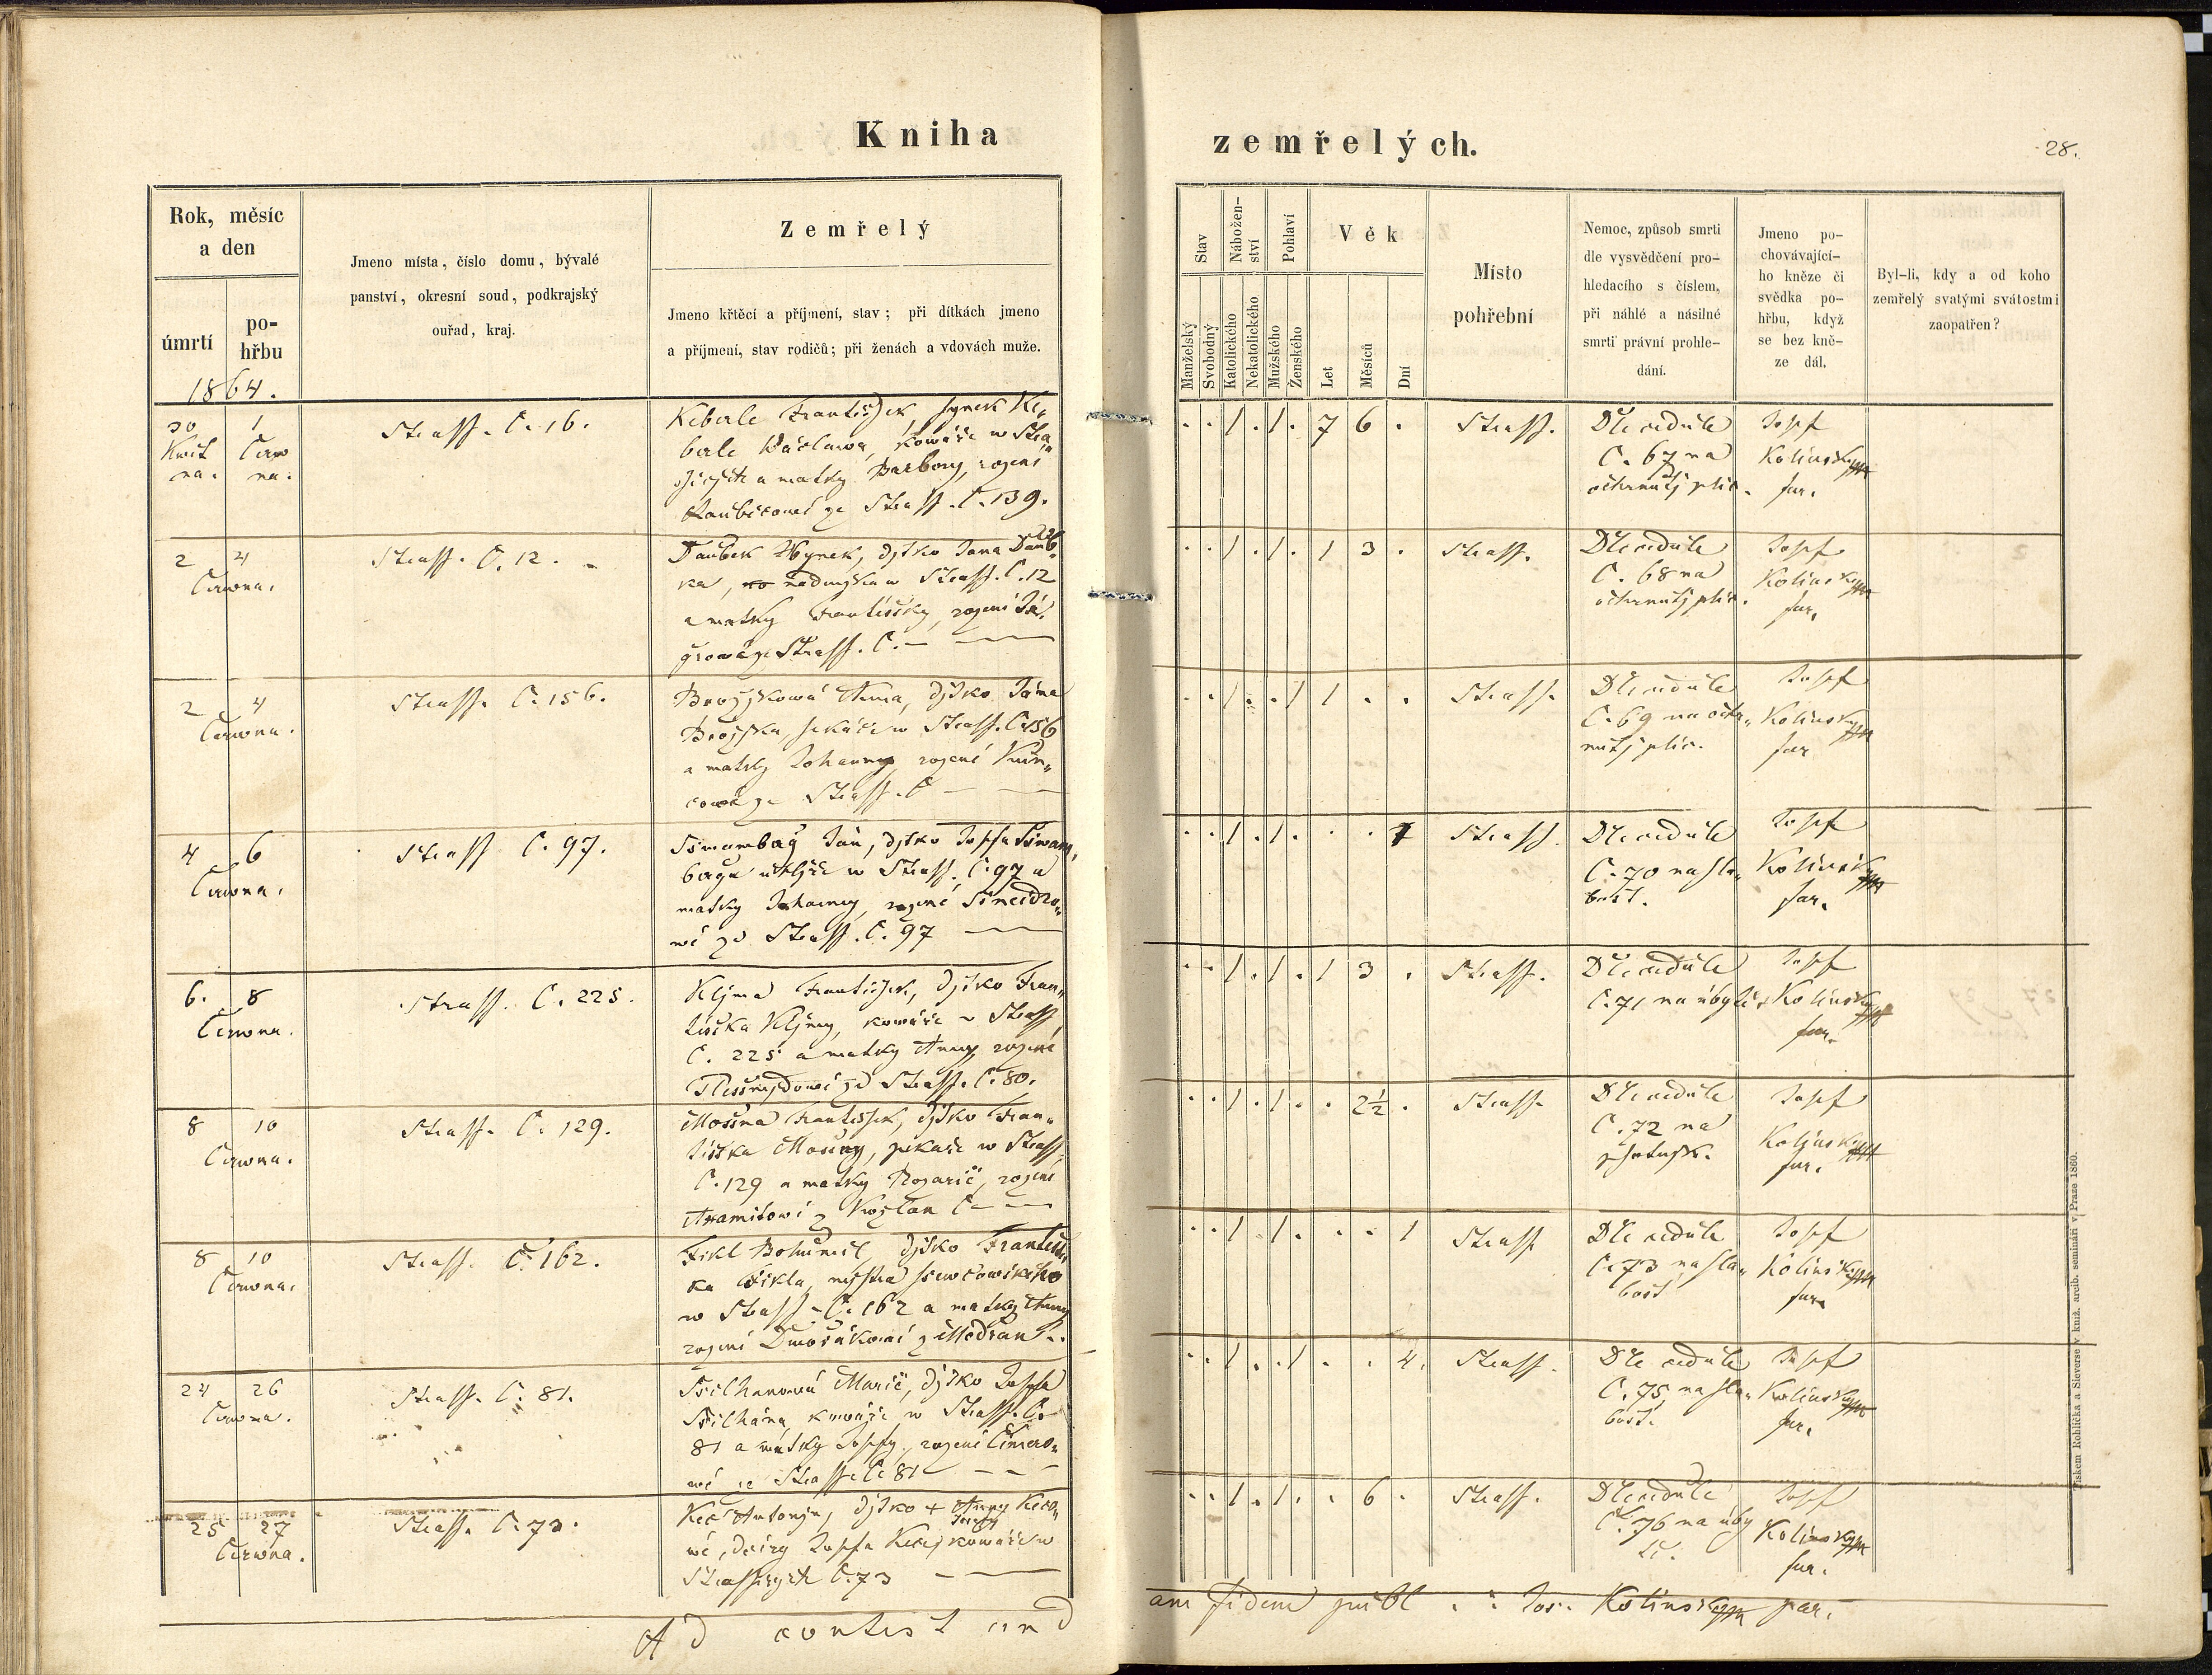 Kniha zemřelých.
28.
Rok, měsíc
a den
úmrtí
po-
hřbu
1864.
Jmeno místa, číslo domu, bývalé
panství, okresní soud, podkrajský
ouřad, kraj.
Zemřelý
Jmeno křtěcí a příjmení, stav; při dítkách jmeno
a příjmení, stav rodičů; při ženách a vdovách muže.
Stav
Manželský
Svobodný
Nábožen-
ství
Katolického
Nekatolického
Pohlaví
Mužského
Ženského
Věk
Let
Měsíců
Dní
Místo
pohřební
Nemoc, způsob smrti
dle vysvědčení pro-
hledacího s číslem,
při náhlé a násilné
smrti právní prohle-
dání.
Jmeno po-
chovávající-
ho kněze či
svědka po-
hřbu, když
se bez kně-
ze dál.
Byl-li, kdy a od koho
zemřelý svatými svátostmi
zaopatřen?
30 1
Kwět Čerw
na. na.
Strass. Č. 16.
Keberle Frantissek synek Ke„
berle Wáclawa, kowáře w Stra„
a matky Barbory, rozené
ze Strass. Č. 139.
7 6
Strass.
Dle cedule
Č. 67 na
ochrnutj plic.
Josef
Kolinský
far.
2 4
Čerwna.
Strass. Č. 12.
Daubek Hynek, djtko Jana Daub„
ka, w Strass. Č. 12
a matky Frantissky, rozené
ze Strass. Č. —
1 3
Strass.
Dle cedule
Č. 68 na
ochrnutj plic.
Josef
Kolinský
far.
2 4
Čerwna.
Strass. Č. 156.
Brožjkowá Anna, djtko Jána
Brožjka, sekáče w Strass. Č. 156
a matky Johanny rozené Kun„
cowé ze Strass. Č —
1
Strass.
Dle cedule
Č. 69 na ochr„
nutj plic.
Josef
Kolinský
far
4 6
Čerwna.
Strass Č. 97.
Jan, djtko Josefa
w Strass. Č. 97 a
matky Johanny, rozené Šneidro„
wé zd Strass. Č. 97
1
Strass.
Dle cedule
Č. 70 na sla„
bost.
Josef
Kolinský
far.
6. 8
Čerwna.
Strass. Č. 225.
Kljma Frantissek, djtko Fran„
tiška Kljmy, kowáře w Strass
Č. 225 a matky Anny rozené
zd Strass. Č. 80.
1 3
Strass.
Dle cedule
Č. 71 na úbytě
Josef
Kolinský
far.
8 10
Čerwna.
Strass. Č. 129.
Mošna Frantissek, djtko Fran„
tiška Mošny, pekaře w Strass
Č. 129 a matky Rozarie, rozené
z Kozlan Č —
2½
Strass.
Dle cedule
Č. 72 na
psotnjk.
Josef
Kolinský
far.
8 10
Čerwna.
Strass. Č. 162.
Fikl Bohumil, djtko Františ„
ka Fikla, mistra ssewcowského
w Strass. Č. 162 a matky Anny
rozené Dwořákowé z Modřan.
1
Strass
Dle cedule
Č. 73 na sla„
bost
Josef
Kolinský
far.
24 26
Čerwna.
Strass. Č. 81.
Ssilhanowá Marie, djtko Josefa
Ssilhána, kowáře w Strass. Č.
81 a matky Josefy, rozené
wé ze Strass. Č 81
4.
Strass.
Dle cedule
Č. 75 na sla„
bost.
Josef
Kolinský
far.
25 27
Čerwna.
Strass. Č. 73.
Kec Antonjn, djtko + Anny Keco„
wé, dcery Josefa Kece, kowáře w
Č. 73
6
Strass.
Dle cedule
Č. 76 na úby
tě.
Josef
Kolinský
far.
Ad contest and
am fidem publ. Jos. Kolinský far.
Tiskem Rohlíčka a Sieverse v kníž. arcib. semináři v Praze 1860.